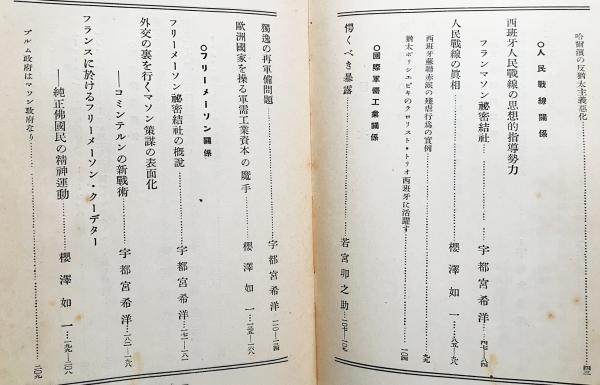 哈爾濱の反猶太主義惡化……四三
○人民戰線關係
西班牙人民戰線の思想的指導勢力
フランマソン祕密結社……宇都宮希洋…四七—八四
人民戰線の眞相……櫻澤如一…八五—九八
西班牙蘇聯赤派の殘虐行爲の實例……九九
猶太ボリシエビキのテロリスト・トリオ西班牙に活躍す……一〇四
○國際軍需工業關係
愕くべき暴露……若宮卯之助…一〇七—一〇九
獨逸の再軍備問題……宇都宮希洋…一一〇—一二四
歐洲國家を操る軍需工業資本の魔手……櫻澤如一…一二五—一六八
○フリーメーソン關係
フリーメーソン祕密結社の槪說……宇都宮希洋…一七一—一八一
外交の裏を行くマソン策謀の表面化
——コミンテルンの新戰術……宇都宮希洋…一八二—一九一
フランスに於けるフリーメーソン・クーデター
——純正佛國民の精神運動……櫻澤如一…一九二—二〇八
ブルム政府はマソン政府なり……二〇九